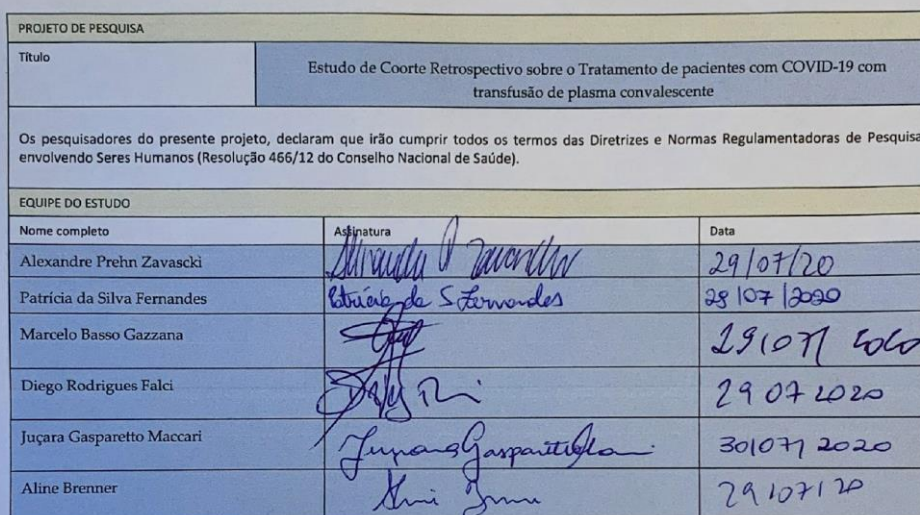 PROJETO DE PESQUISA
Título
Estudo de Coorte Retrospectivo sobre o Tratamento de pacientes com COVID-19 com
transfusão de plasma convalescente
Os pesquisadores do presente projeto, declaram que irão cumprir todos os termos das Diretrizes e Normas Regulamentadoras de Pesquisa
envolvendo Seres Humanos (Resolução 466/12 do Conselho Nacional de Saúde).
EQUIPE DO ESTUDO
Nome completo Assinatura Data
Alexandre Prehn Zavascki 29/07/20
Patrícia da Silva Fernandes Patrícia da S Fernandes /07/2020
Marcelo Basso Gazzana 29/07/2020
Diego Rodrigues Falci 29 07 2020
Juçara Gasparetto Maccari 30/07/2020
Aline Brenner 29/07/20